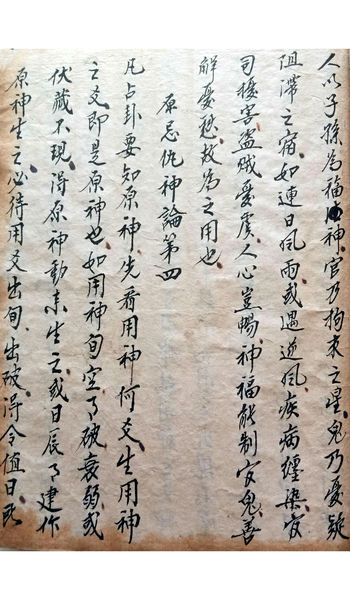 人以子孫為福神官乃拘束之星鬼乃憂疑
阻滯之宿如連日風雨或遇逆風疾病纏染官
司擾害盜賊憂虞人心豈暢神福能制官鬼善
解憂愁故為之用也
原忌仇神論第四
凡占卦要知原神先看用神何爻生用神
之爻即是原神也如用神旬空月破衰弱或
伏藏不現得原神動來生之或日辰月建作
原神生之必待用爻出旬出破得令值日